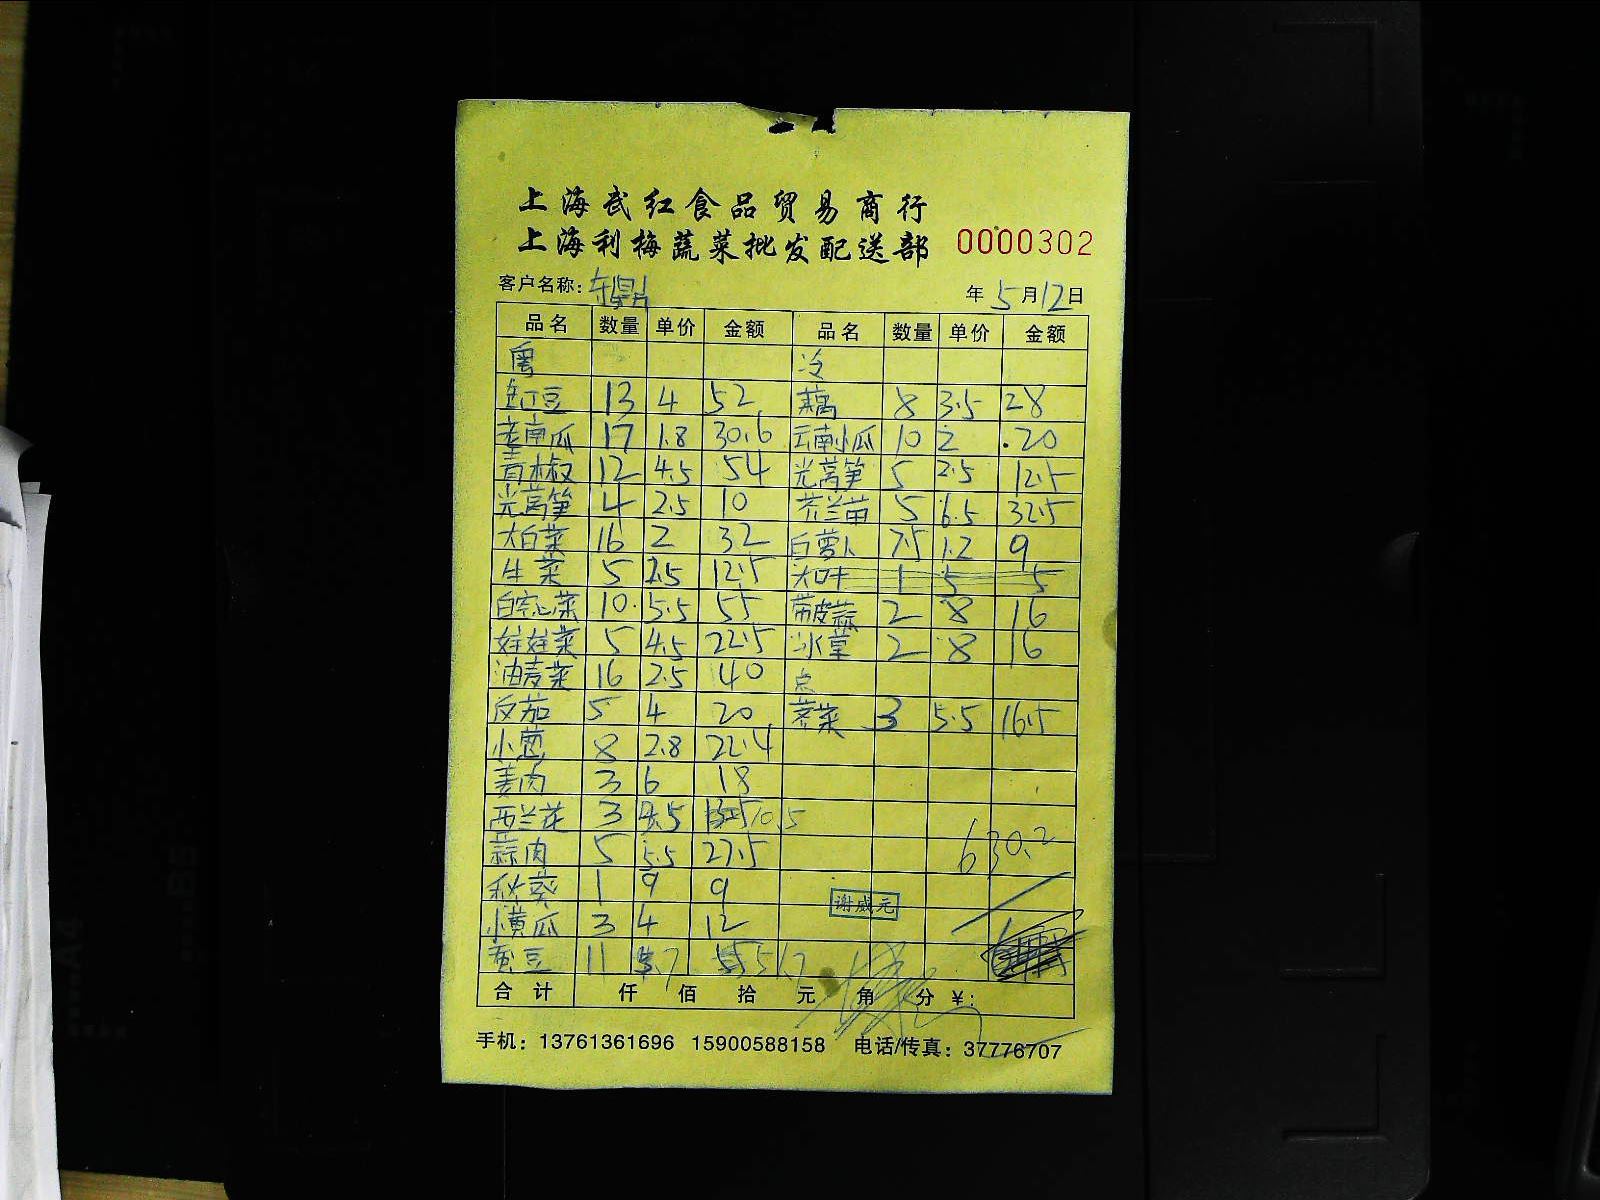 上海武红食品贸易商行
上海利梅蔬菜批发配送部 0000302
客户名称: 年 5月12日
品名 数量 单价 金额 品名 数量 单价 金额
粤 冷
豇豆 13 4 52 藕 8 3.5 28
老南瓜 17 1.8 30.6 云南小瓜 10 2 20
青椒 12 4.5 54 光莴笋 5 2.5 12.5
光莴笋 4 2.5 10 芥兰苗 5 6.5 32.5
大白菜 16 2 32 白萝卜 7.5 1.2 9
生菜 5 2.5 12.5 大叶 1 5 5
白空心菜 10 5.5 55 带皮蒜 2 8 16
娃娃菜 5 4.5 22.5 冰草 2 8 16
油麦菜 16 2.5 40 点
反茄 5 4 20 荠菜 3 5.5 16.5
小葱 8 2.8 22.4
姜肉 3 6 18
西兰花 3 3.5 10.5
630.2
蒜肉 5 5.5 27.5
秋葵 1 9 9
谢威元
小黄瓜 3 4 12
蚕豆 11 4.7 51.7
合计 仟 佰 拾 元 角 分 ¥:
手机: 13761361696 15900588158 电话/传真: 37776707